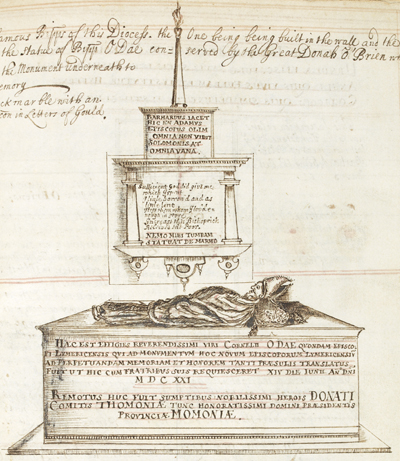 famous Bpps of this Diocess. the One being being built in the wall and the
the Statue of Bpp O Dae con- served by the Great Donab O Brien
the Monument underneath to
emory
ck marble with an
in Letters of Gould
BARNARDUS IACET
HIC EN ADAMUS
EPISCOPUS OLIM
OMNIA NON VIDIT
SOLOMONIS AT
OMNIA VANA.
Sufficient God did give me,
which I spent
I little borrowed and as
little lent
NEMO MIHI TUMBAM
STATUAT DE MARMO
HAC EST EFFIGIES REVERENDISSIMI VIRI CORNELII O DAE QUONDAM EPISCO-
PI LYMERICENSIS QUI AD MONUMENTUM HOC NOVUM EPISCOPORUM LYMERICENSIU
AD PERPETUANDAM MEMORIAM ET HONOREM TANTI PRÆSULIS TRANSLATUS
FUIT UT HIC CUM FRATRIBUS SUIS REQUIESCERET XIV DIE IUNII ANO DNI
M D C XXI
REMOTUS HUC FUIT SUMPTIBUS NOBILISSIMI HEROIS DONATI
COMITIS THOMONIÆ TUNC HONORATISSIMI DOMINI PRÆSIDENTIS
PROVINCIÆ MOMONIÆ.